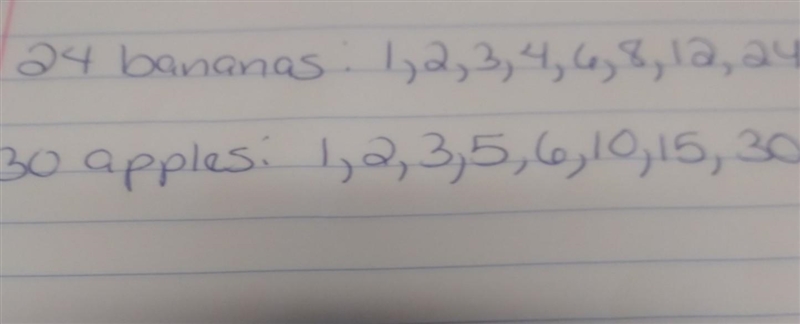 24 bananas: 1,2,3,4,6,8,12,24
30 apples: 1,2,3,5,6,10,15,30